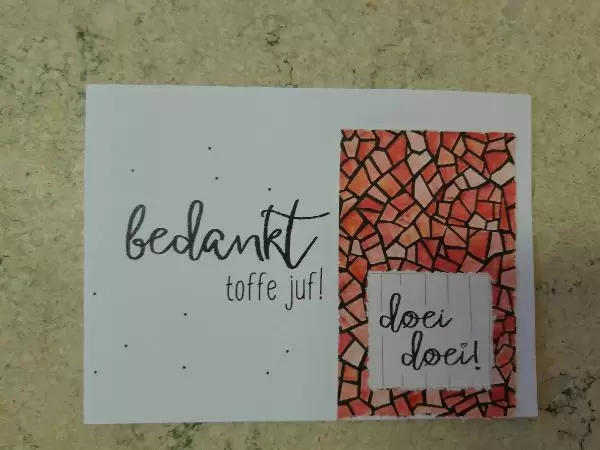 bedankt
toffe juf!
doei
doei!